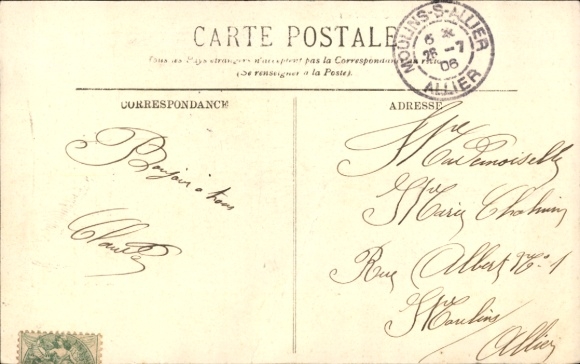 CARTE POSTALE
Tous les Pays étrangers n'acceptent pas la Correspondance au
(Se renseigner à la Poste).
MOULINS-S-ALLIER
6
26 -7
06
ALLIER
CORRESPONDANCE
ADRESSE
Bonjour a tous
Claude
Mademoiselle
Marie
Rue Albert No. 1
Moulins
Allier